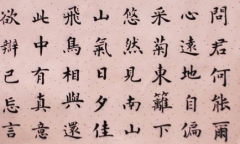 問君何能爾
心遠地自偏
采菊東籬下
悠然見南山
山氣日夕佳
飛鳥相與還
此中有真意
欲辯已忘言